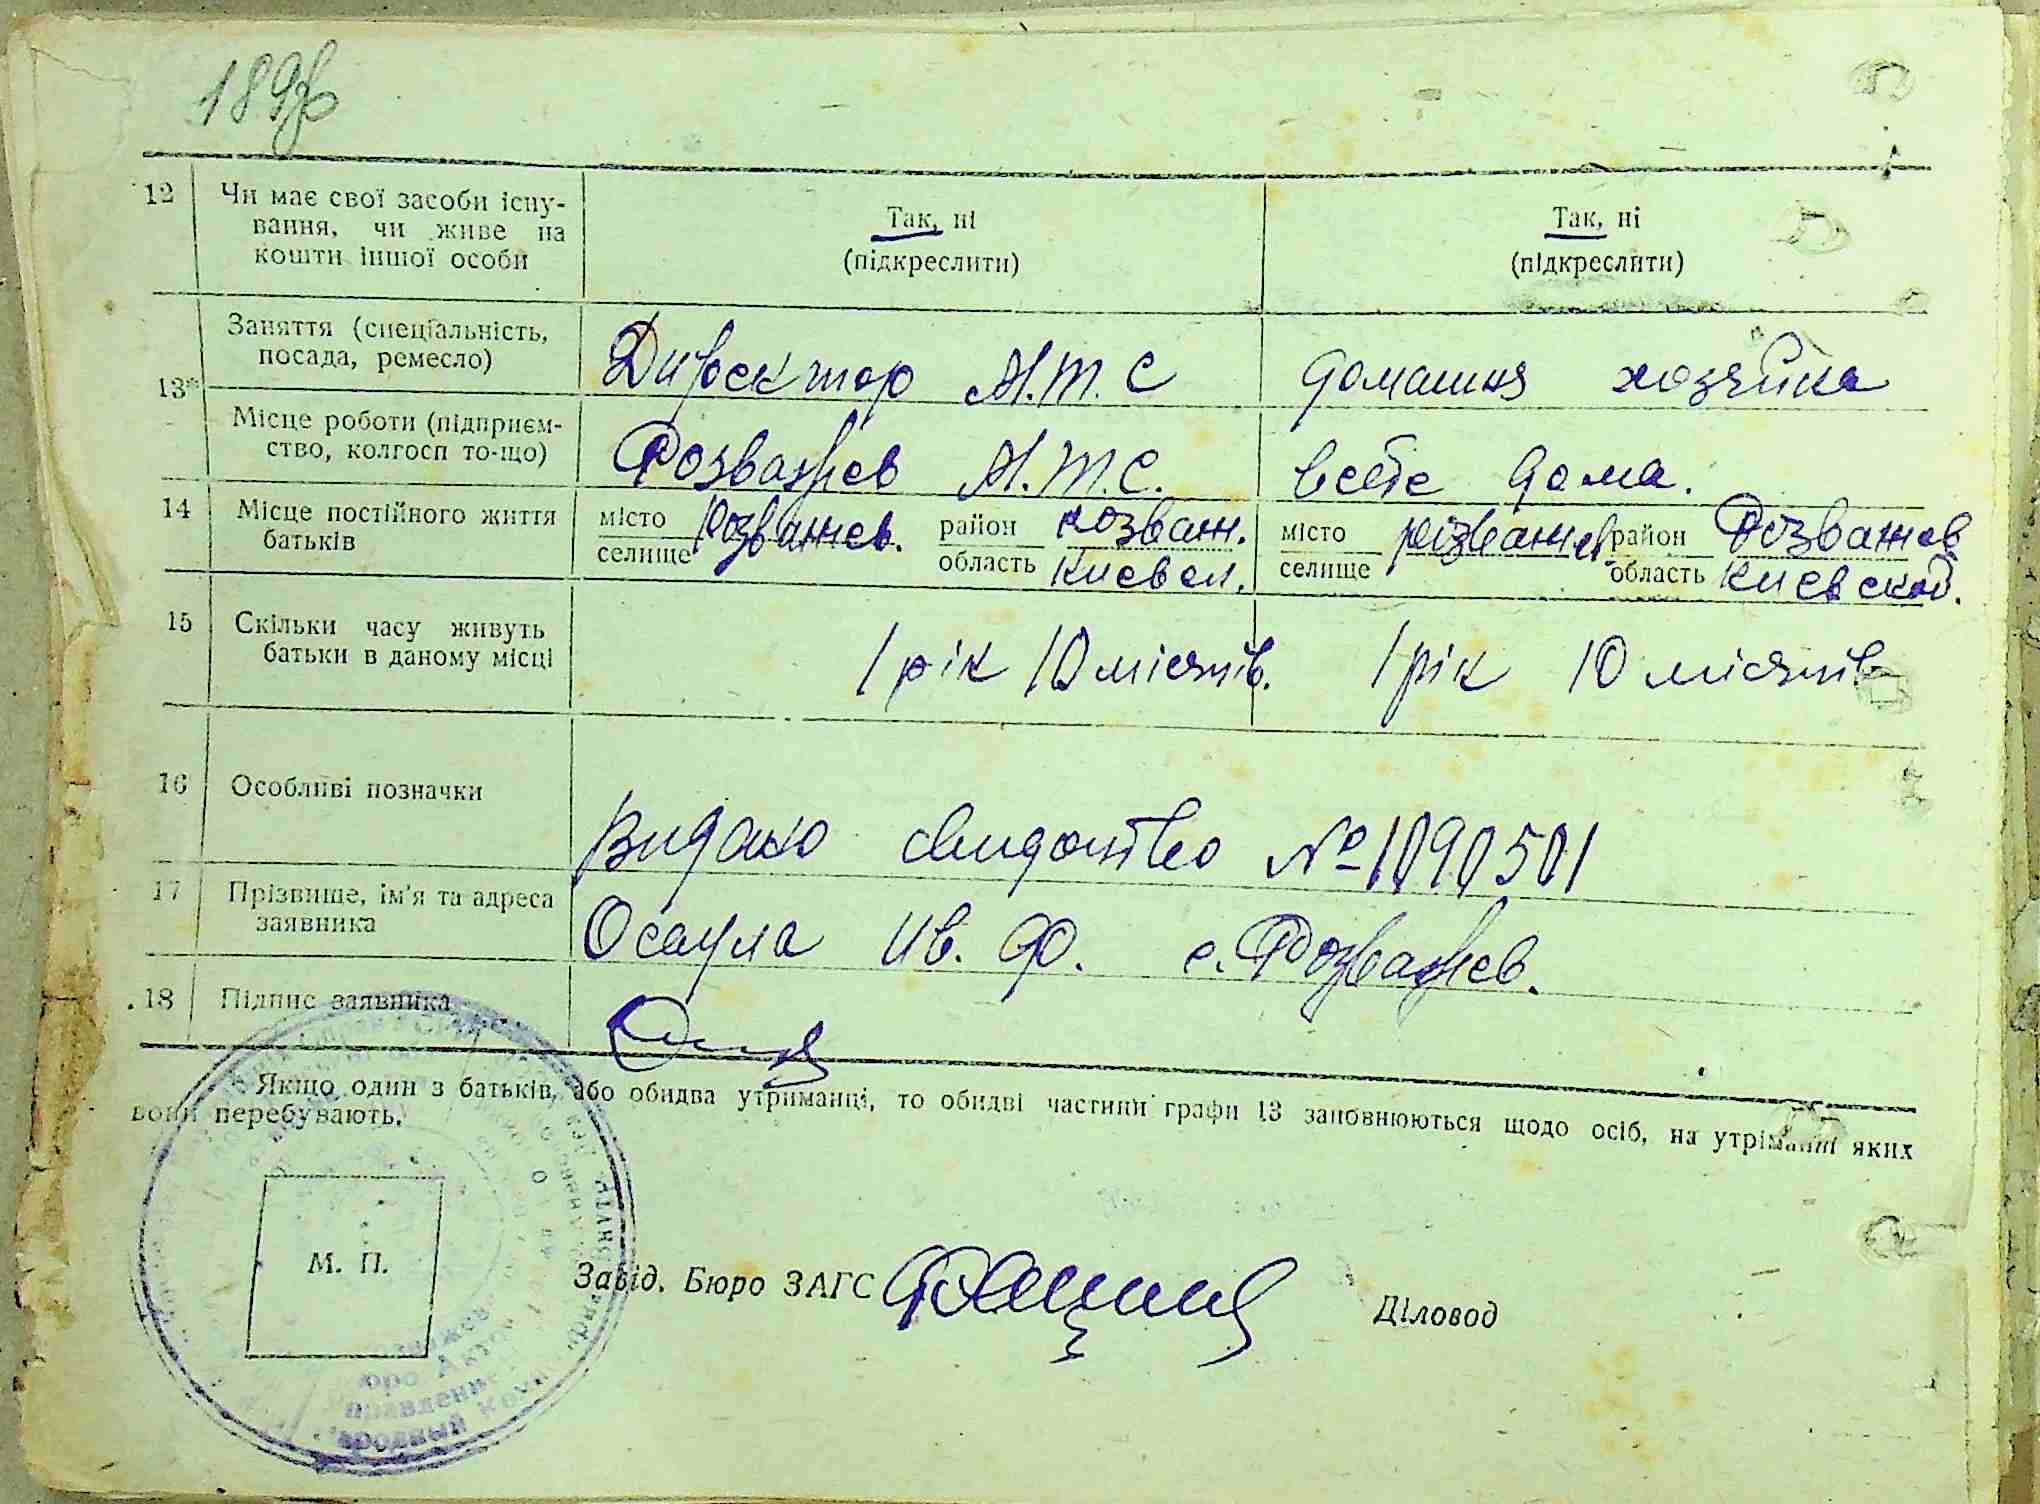 12 Чи має свої засоби існу-
вання, чи живе на
кошти іншої особи
Так, ні
(підкреслити)
Так, ні
(підкреслити)
13* Заняття (спеціальність,
посада, ремесло)
Директор М.Т.С
домашня хозяйка
Місце роботи (підприєм-
ство, колгосп то-що)
Розважев М.Т.С.
дома.
14 Місце постійного життя
батьків
місто
селище
Розважев.
район Розваж.
область Киевск.
місто
селище
Розважев.
район Розважев
область Киевской.
15 Скільки часу живуть
батьки в даному місці
1 рік 10 місяців.
1 рік 10 місяців
16 Особливі позначки
Видано свидоцтво № 1090501
17 Прізвище, ім'я та адреса
заявника
Осаула Ив. Ф. с. Розважев.
18 Підпис заявника
Якщо один з батьків, або обидва утриманці, то обидві частини графи 13 заповнюються щодо осіб, на утриманні яких
вони перебувають.
М. П.
Завід. Бюро ЗАГС
Діловод